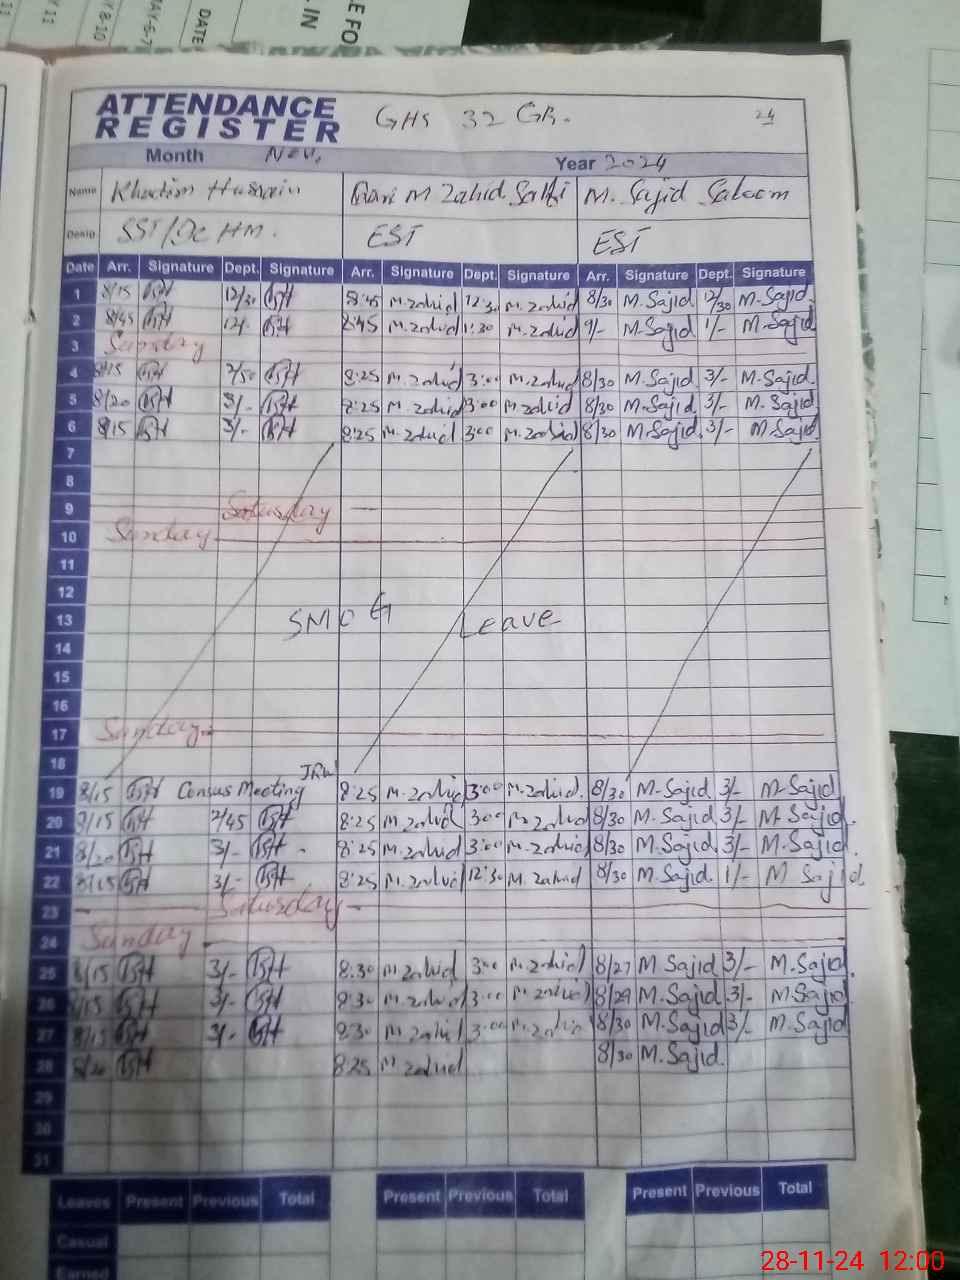 DATE
IN
LE FO
ATTENDANCE
REGISTER
GHS 32 GR.
24
Month Nov, Year 2024
Name Khadim Hussain Qari M Zahid Salfi M. Sajid Saleem
Desig. SST/ HM. EST EST
Date Arr. Signature Dept. Signature Arr. Signature Dept. Signature Arr. Signature Dept. Signature
1 8/15 12/30 8:45 M.zahid 12:30 M.zahid 8/30 M.Sajid 12/30 M.Sajid.
2 8/45 12/- 8:45 M.zahid 1:30 M.zahid 9/- M.Sajid 1/- M.Sajid
3 Sunday
4 8/15 2/50 8:25 M.zahid 3:00 M.zahid 8/30 M.Sajid 3/- M.Sajid.
5 8/20 3/- 8:25 M.zahid 3:00 M.zahid 8/30 M.Sajid. 3/- M.Sajid
6 8/15 3/- 8:25 M.zahid 3:00 M.zahid 8/30 M.Sajid. 3/- M.Sajid
7
8
9 Saturday
10 Sunday
11
12
13 SMOG Leave
14
15
16
17 Sunday
18
19 8/15 Census Meeting JRW 8:25 M.zahid 3:00 M.zahid. 8/30 M-Sajid 3/- M-Sajid
20 8/15 2/45 8:25 M.zahid 3:00 M.zahid 8/30 M.Sajid 3/- M-Sajid.
21 8/20 3/- 8:25 M.zahid 3:00 M.zahid 8/30 M.Sajid. 3/- M.Sajid.
22 8/15 3/- 8:25 M.zahid 12:30 M.zahid 8/30 M.Sajid. 1/- M Sajid.
23 Saturday
24 Sunday
25 8/15 3/- 8:30 M.zahid 3:00 M.zahid 8/27 M Sajid 3/- M.Sajid.
26 8/15 3/- 8:30 M.zahid 3:00 M.zahid 8/29 M.Sajid 3/- M.Sajid.
27 8/15 3/- 8:30 M.zahid 3:00 M.zahid 8/30 M.Sajid 3/- M.Sajid
28 8/20 8:25 M.zahid 8/30 M.Sajid.
29
30
31
Leaves Present Previous Total Present Previous Total Present Previous Total
Casual
Earned
28-11-24 12:00